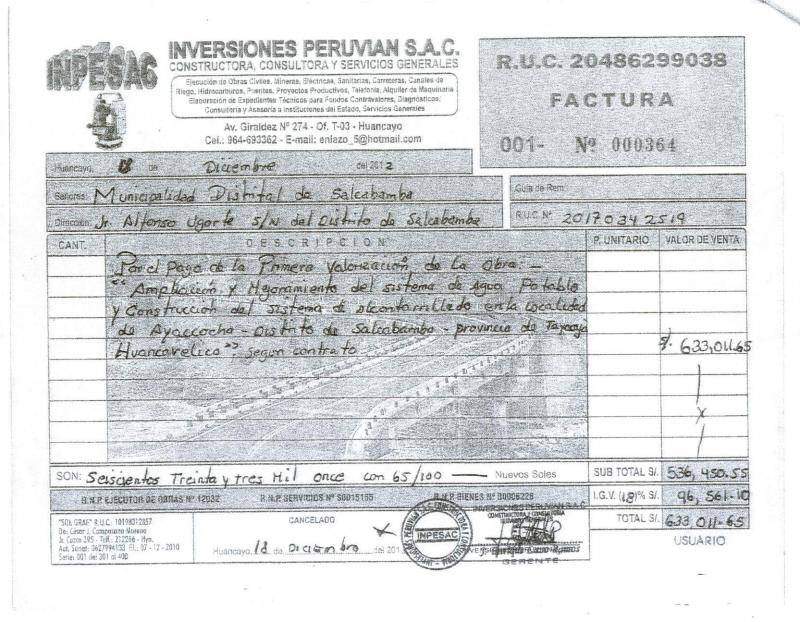 INPESAC
INVERSIONES PERUVIAN S.A.C.
CONSTRUCTORA, CONSULTORA Y SERVICIOS GENERALES
Ejecución de Obras Civiles, Mineras, Eléctricas, Sanitarias, Carreteras, Canales de
Riego, Hidrocarburos, Puentes, Proyectos Productivos, Telefonía, Alquiler de Maquinaria
Elaboración de Expedientes Técnicos para Fondos Contravalores, Diagnósticos,
Consultoría y Asesoría a Instituciones del Estado, Servicios Generales
Av. Giraldez Nº 274 - Of. T-03 - Huancayo
Cel.: 964-693362 - E-mail: enlazo_5@hotmail.com
R.U.C. 20486299038
FACTURA
001- Nº 000364
Huancayo, 18 de Diciembre del 2012
Señores: Municipalidad Distrital de Salcabamba
Guía de Rem.
Dirección: Jr. Alfonso Ugarte S/N del Distrito de Salcabamba
R.U.C. Nº 20170342519
CANT. DESCRIPCION P. UNITARIO VALOR DE VENTA
Por el Pago de la Primera Valorización de la Obra: -
"Ampliación y Mejoramiento del sistema de Agua Potable
y Construcción del sistema de alcantarillado en la localidad
de Ayaccocha - Distrito de Salcabamba - provincia de Tayacaja
Huancavelica". según contrato
S/. 633,011.65
SON: Seiscientos Treinta y tres Mil once con 65/100 Nuevos Soles
SUB TOTAL S/. 536,450.55
R.N.P. EJECUTOR DE OBRAS Nº 12032 R.N.P. SERVICIOS Nº S0015155 R.N.P. BIENES Nº B0006228
I.G.V. (18)% S/. 96,561.10
TOTAL S/. 633,011.65
"SOL GRAF" R.U.C. 10198012857
De: César J. Camposano Moreno
Jr. Cuzco 295 - Telf.: 212286 - Hyo.
Aut. Sunat: 0627994133 F.I.: 07 - 12 - 2010
Serie: 001 del 301 al 400
CANCELADO
Huancayo, 18 de Diciembre del 201
INPESAC
INVERSIONES PERUVIAN S.A.C
CONSTRUCTORA Y CONSULTORA
GERENTE
USUARIO